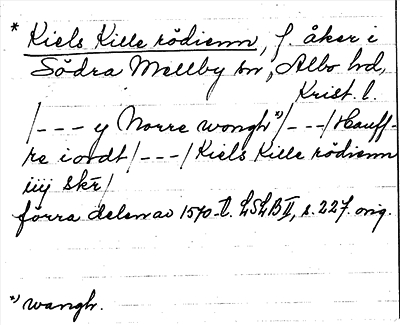 * Kiels Kille rödienn, f. åker i
Södra Mellby sn, Albo hd,
Krist. l.
/--- y Norre wongh *)/---/Hauff-
re iordt/---/Kiels Kille rödienn
iiij skr/
förra delen av 1570-t. LSLB II, s. 227. orig.
*) wangh.